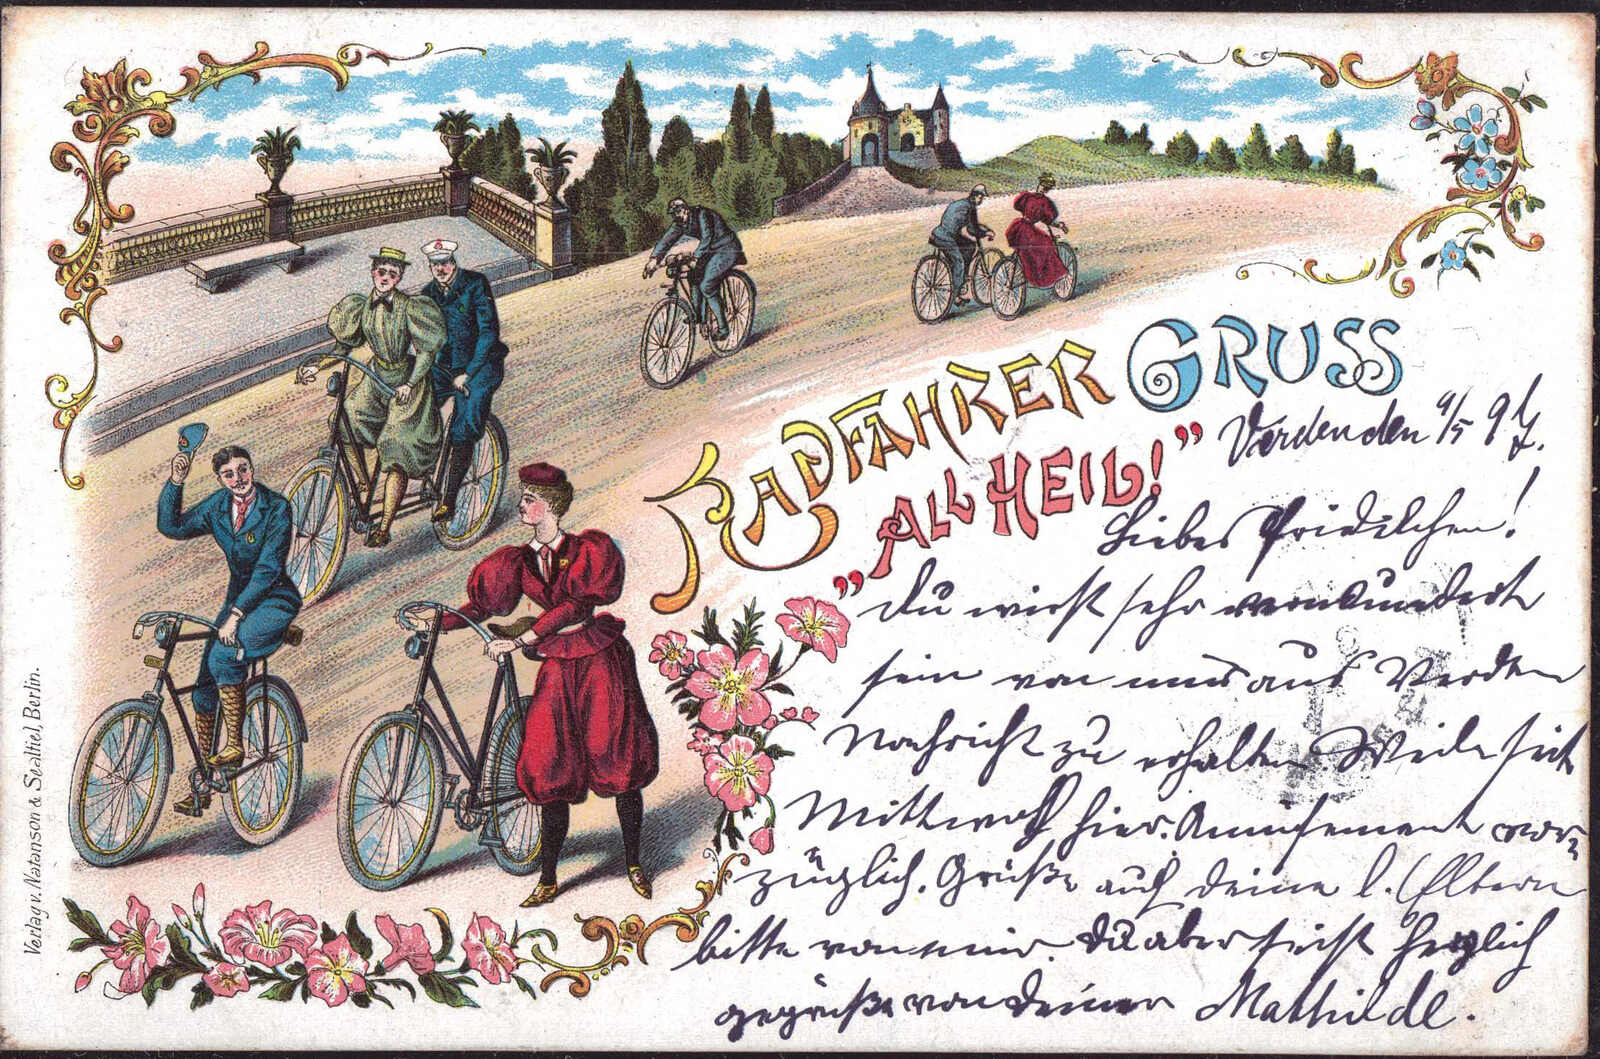 RADFAHRER GRUSS
„ALL HEIL!"
Verden den 9/5 97.
Liebes Friedelchen!
du wirst sehr verwundert
sein von uns aus Verden
Nachricht zu erhalten. Weile seit
Mittwoch hier. Amusement vor-
züglich. Grüße auch deine l. Eltern
bitte von mir. Du aber seist herzlich
gegrüßt von deiner Mathilde.
Verlag v. Natanson & Sealtiel, Berlin.